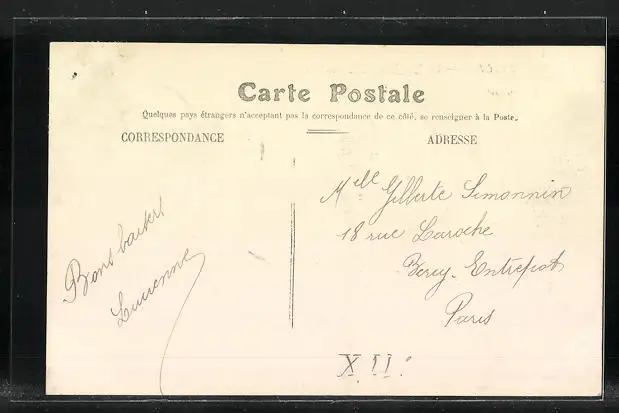 Carte Postale
Quelques pays étrangers n'acceptant pas la correspondance de ce côté, se renseigner à la Poste.
CORRESPONDANCE
ADRESSE
Melle Gilberte Simonnin
18 rue Laroche
Bercy-Entrepôt
Paris
XII.e
Bons baisers
Lucienne